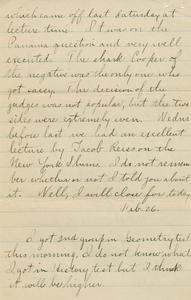 which came off last Saturday at
lecture time. I was on the
Panama question and very well
executed. The shark Cooper of
the negative was the only one who
got easy. The decision of the
judges was not popular, but the two
sides were extremely even. Wednes
before last we had an excellent
lecture by Jacob Reess on the
New York Slums. I do not remem
ber whether or not I told you about
it. Well, I will close for today
1-26-26.
I got 2nd group in Geometry test
this morning, I do not know what
I got in History test but I think
it will be higher.